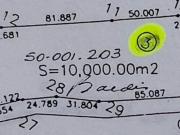 12 81.887 11 50.007
2.681
③
50-001.203
S=10,000.00m2
28
.122 24.789 31.804 85.087
27 29